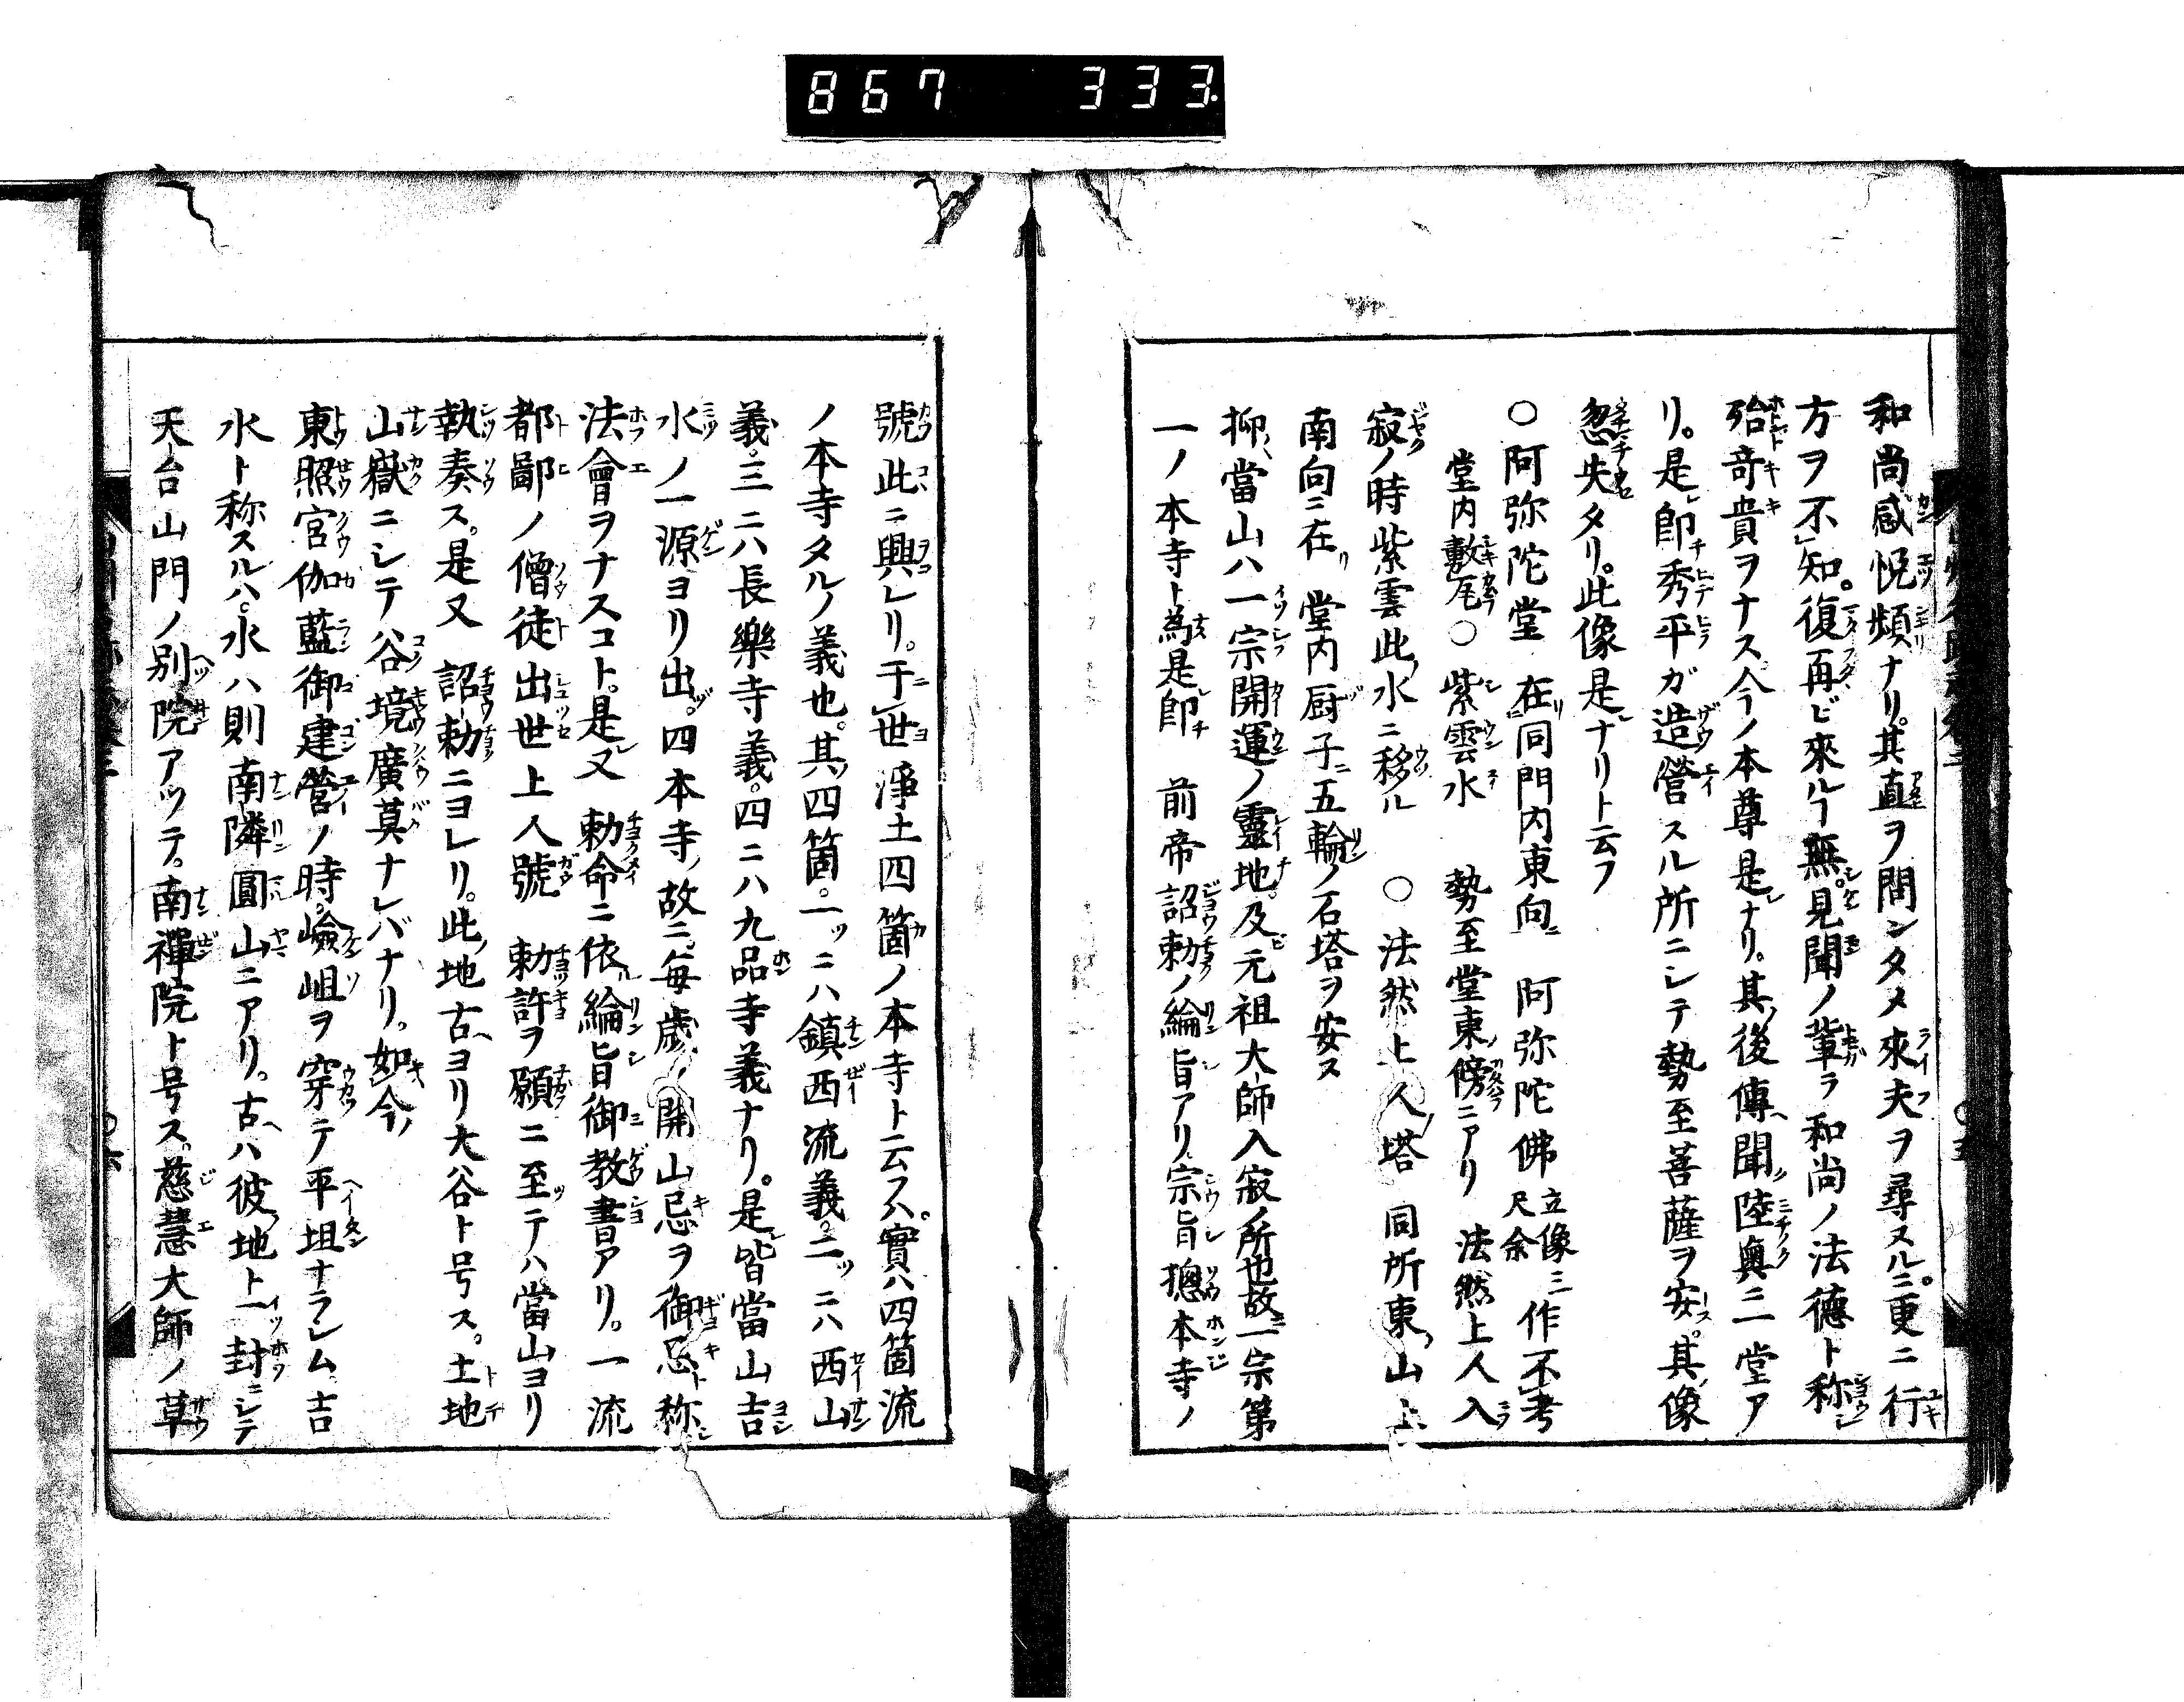 867 333.
和尚感悦頻ナリ。其直ヲ問ンタメ來夫ヲ尋ヌル。三更ニ行
方ヲ不知。復再ビ來ルヿ無。見聞ノ輩ラ和尚ノ法德ト称シ
殆竒貴ヲナス。今ノ本尊是レナリ。其後傳ヘ聞ク陸奥ニ一堂ア
リ。是レ即チ秀平ガ造營スル所ニシテ勢至菩薩ヲ安ス。其ノ像
忽失タリ。此像是レナリト云フ
○阿弥陀堂 在リ同門内東向ニ 阿弥陀佛 立像三尺余 作不考
堂内敷瓦○紫雲水 勢至堂東ノ傍ニアリ 法然上人入
寂ノ時紫雲此ノ水ニ移ル ○法然上人ノ塔 同所東ノ山上
南向ニ在リ 堂内厨子ニ五輪ノ石塔ヲ安ス
抑當山ハ一宗開運ノ靈地。及ビ元祖大師入寂ノ所也故ニ一宗第
一ノ本寺ト為ス是レ即チ 前帝詔勅ノ綸旨アリ宗旨摠本寺ノ
號此ニ興レリ。于世淨土四箇ノ本寺ト云フハ。實ハ四箇流
ノ本寺タルノ義也。其ノ四箇。一ッニハ鎮西流義。二ッニハ西山
義。三ニハ長樂寺義。四ニハ九品寺義ナリ。是レ皆當山吉
水ノ一源ヨリ出ヅ。四本寺ノ故ニ。毎歳開山忌ヲ御忌ト称シ
法會ヲナスコト。是レ又 勅命ニ依ル綸旨御教書アリ。一流
都鄙ノ僧徒出世上人號 勅許ヲ願ニ至ッテハ當山ヨリ
執奏ス。是又 詔勅ニヨレリ。此ノ地古ヘヨリ大谷ト号ス。土地
山嶽ニシテ谷境廣莫ナレバナリ。如キ今ノ
東照宮伽藍御建營ノ時。嶮岨ヲ穿テ平坦ナラシム。吉
水ト称スルハ。水ハ則南隣圓山ニアリ。古ヘハ彼ノ地ト一封ニシテ
天台山門ノ別院アツテ。南禪院ト号ス。慈慧大師ノ草